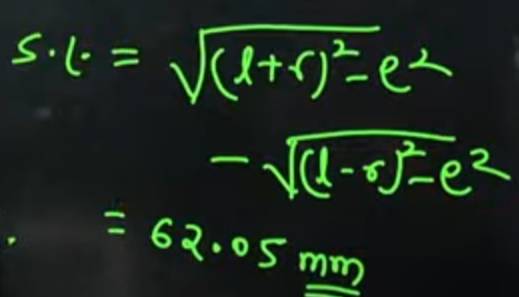 S.L. = √(l+r)²-e²
- √(l-r)²-e²
= 62.05 mm